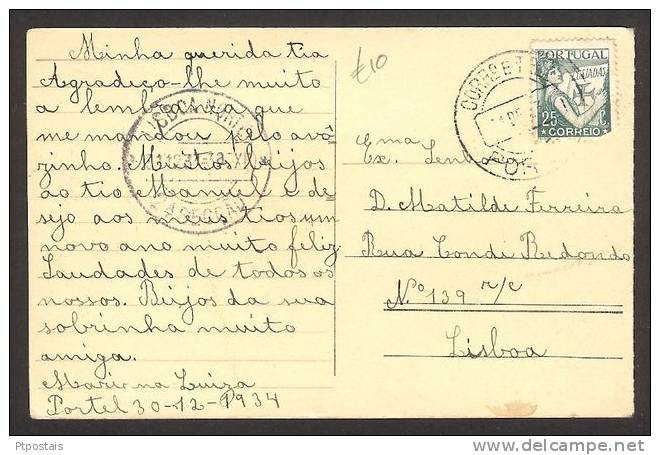 Minha querida tia
Agradeço-lhe muito
a lembrança que
me mandou pelo avô
zinho. Muitos beijos
ao tio Manuel e de
sejo aos mais tios um
novo ano muito feliz
Saudades de todos os
nossos. Beijos da sua
sobrinha muito
amiga.
Luiza
Portel 30-12-1934
£10
PORTUGAL
LUSIADAS
25 C.
CORREIO
Ema
Ex. Senr
D. Matilde Ferreira
Rua Condi Redondo
Nº 139 r/c
Lisboa
Ptpostais
delcampe.net